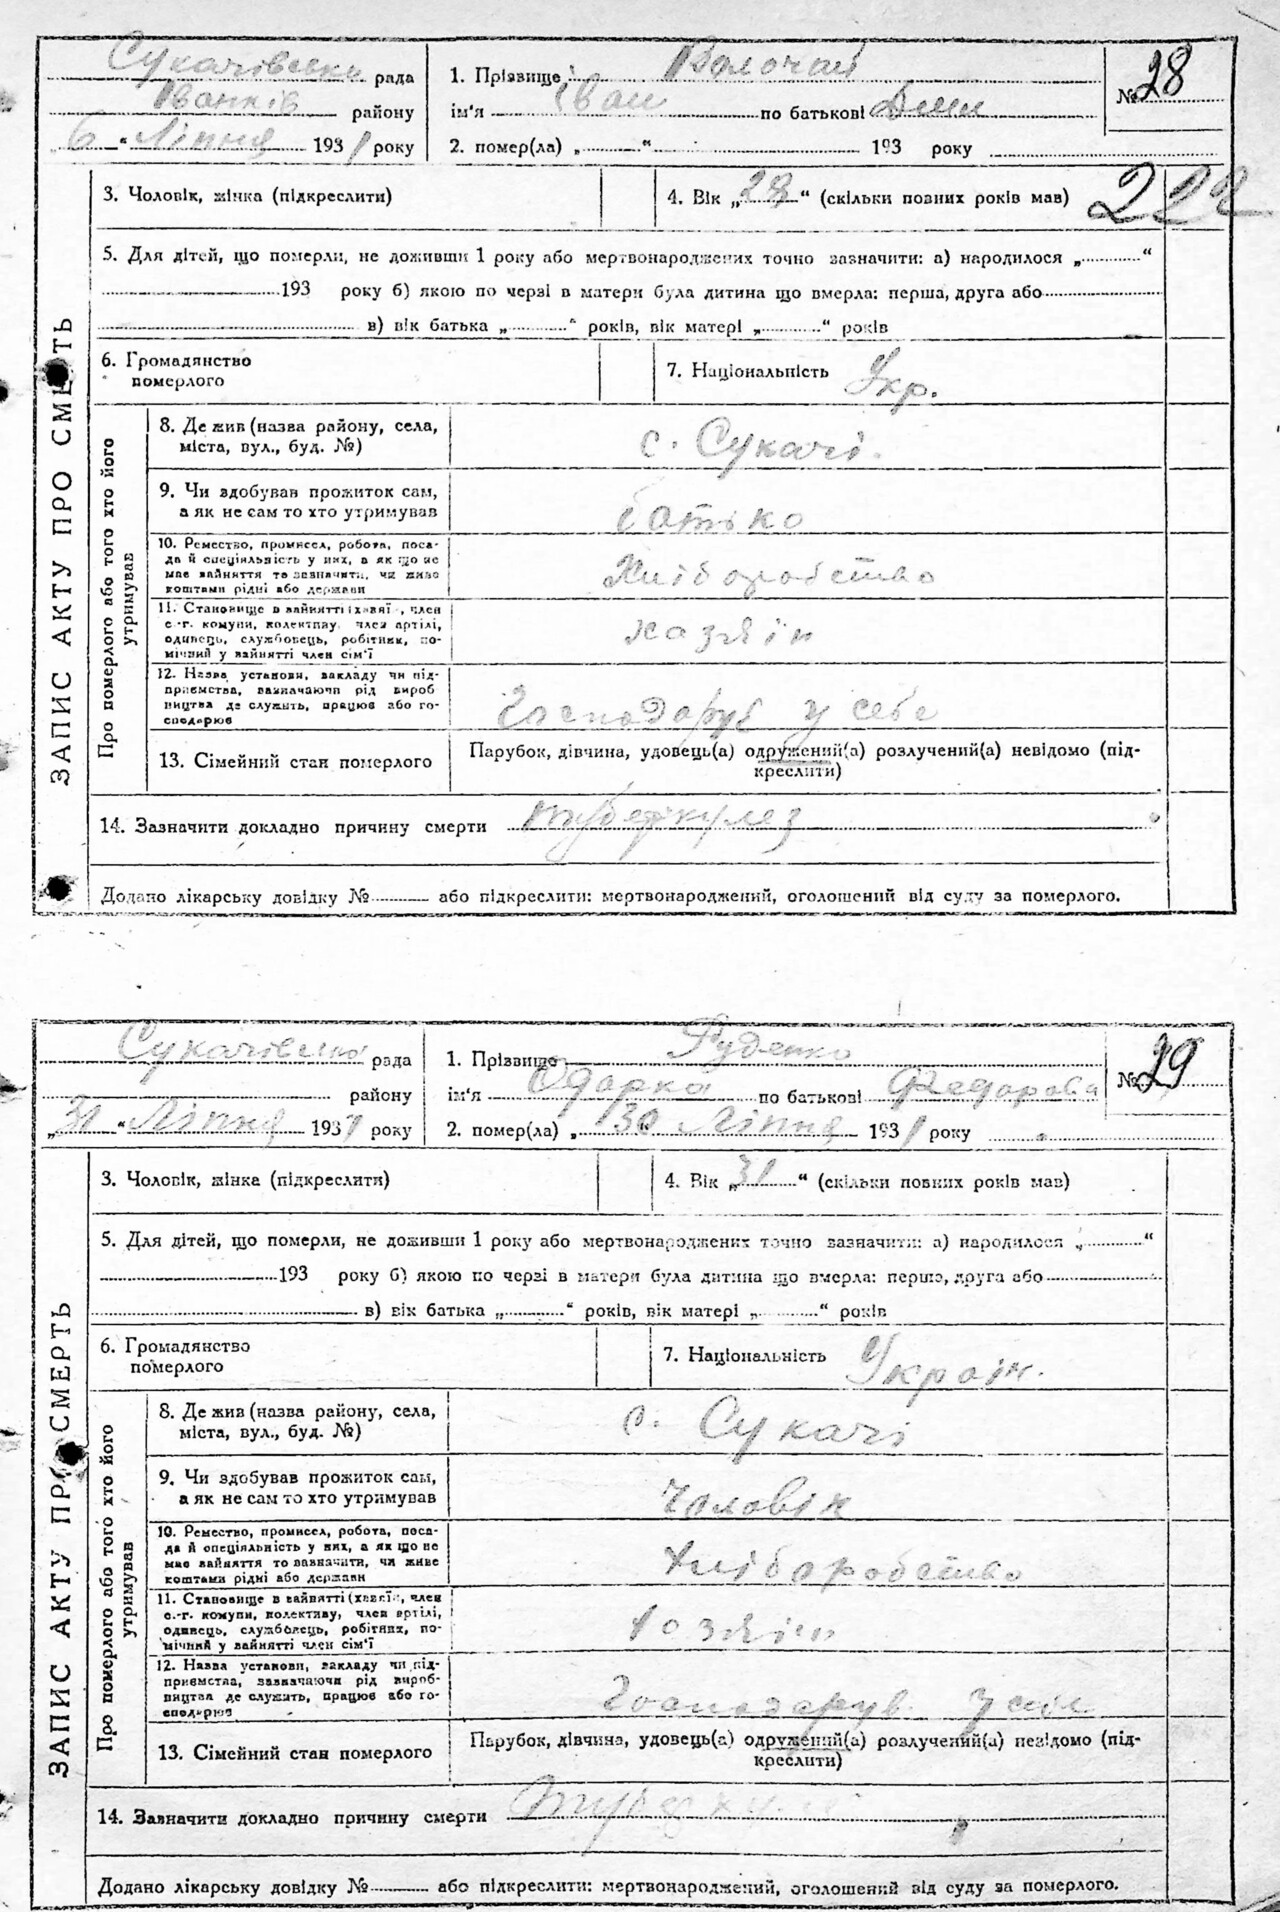 Сукачівська рада
Іванків району
„6“ Ліпня 1931 року
1. Прізвище Волочай
ім'я Іван по батькові
2. помер(ла) „ “ 193 року
№ 28
222
3. Чоловік, жінка (підкреслити)
4. Вік „28“ (скільки повних років мав)
5. Для дітей, що померли, не доживши 1 року або мертвонароджених точно зазначити: а) народилося „ “
193 року б) якою по черзі в матери була дитина що вмерла: перша, друга або
в) вік батька „ “ років, вік матері „ “ років
6. Громадянство
померлого
7. Національність Укр.
ЗАПИС АКТУ ПРО СМЕРТЬ
Про померлого або того хто його
утримував
8. Де жив (назва району, села,
міста, вул., буд. №)
с. Сукачі.
9. Чи здобував прожиток сам,
а як не сам то хто утримував
батько
10. Ремество, промисел, робота, поса-
да й спеціяльність у них, а як що не
має зайняття то зазначити, чи живе
коштами рідні або держави
Хліборобство
11. Становище в зайнятті (хазяї , член
с.-г. комуни, колективу, член артілі,
одинець, службовець, робітник, по-
мічний у зайнятті член сім'ї
хазяін
12. Назва установи, закладу чи під-
приємства, зазначаючи рід вироб
ництва де служить, працює або го-
сподарює
Господарує у себе
13. Сімейний стан померлого
Парубок, дівчина, удовець(а) одружений(а) розлучений(а) невідомо (під-
креслити)
14. Зазначити докладно причину смерти туберкулез
Додано лікарську довідку № або підкреслити: мертвонароджений, оголошений від суду за померлого.
Сукачівська рада
району
„31“ Ліпня 1931 року
1. Прізвище Руденко
ім'я Одарка по батькові Федорова
2. помер(ла) „30“ Ліпня 1931 року
№ 29
3. Чоловік, жінка (підкреслити)
4. Вік „31“ (скільки повних років мав)
5. Для дітей, що померли, не доживши 1 року або мертвонароджених точно зазначити: а) народилося „ “
193 року б) якою по черзі в матери була дитина що вмерла: перша, друга або
в) вік батька „ “ років, вік матері „ “ років
6. Громадянство
померлого
7. Національність Украін.
ЗАПИС АКТУ ПРО СМЕРТЬ
Про померлого або того хто його
утримував
8. Де жив (назва району, села,
міста, вул., буд. №)
с. Сукачі
9. Чи здобував прожиток сам,
а як не сам то хто утримував
Чоловік
10. Ремество, промисел, робота, поса-
да й спеціяльність у них, а як що не
має зайняття то зазначити, чи живе
коштами рідні або держави
Хліборобство
11. Становище в зайнятті (хазяїн, член
с.-г. комуни, колективу, член артілі,
одинець, службовець, робітник, по-
мічний у зайнятті член сім'ї
хозяін
12. Назва установи, закладу чи під-
приємства, зазначаючи рід вироб-
ництва де служить, працює або го-
сподарює
Господарув. у
13. Сімейний стан померлого
Парубок, дівчина, удовець(а) одружений(а) розлучений(а) невідомо (під-
креслити)
14. Зазначити докладно причину смерти
Додано лікарську довідку № або підкреслити: мертвонароджений, оголошений від суду за померлого.